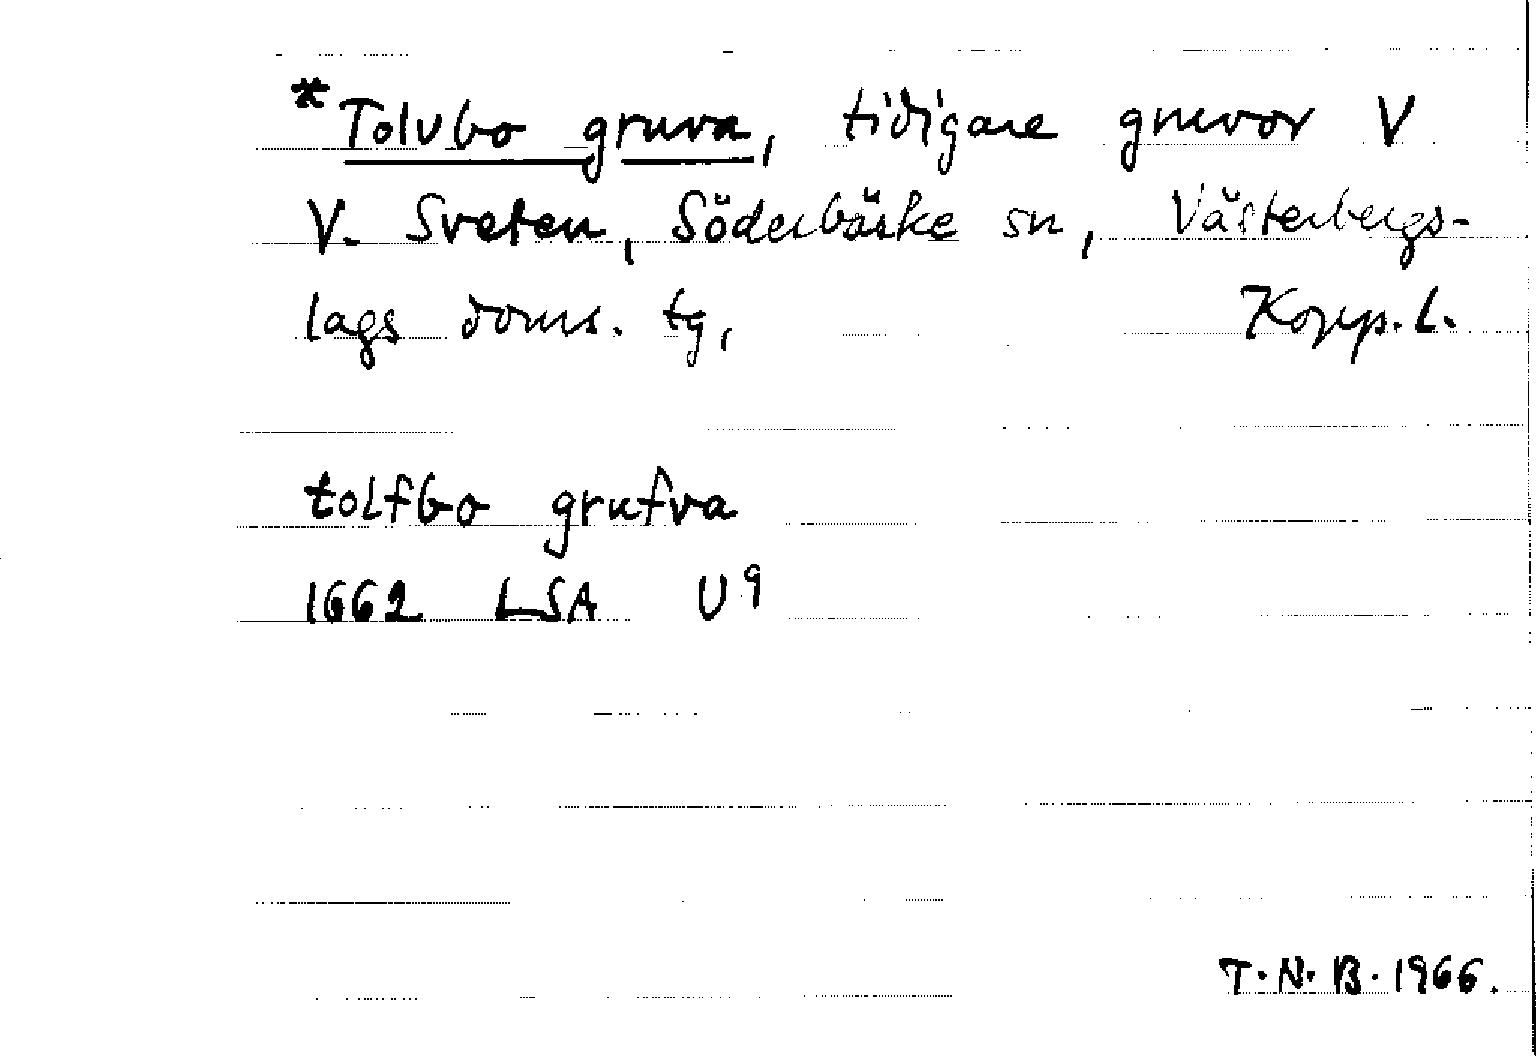 *Tolvbo gruva, tidigare gruvor V
V. Sveten, Söderbärke sn, Västerbergs-
lags doms. tg, Kopp. L.
tolfbo grufva
1662 LSA U9
T.N.B. 1966.